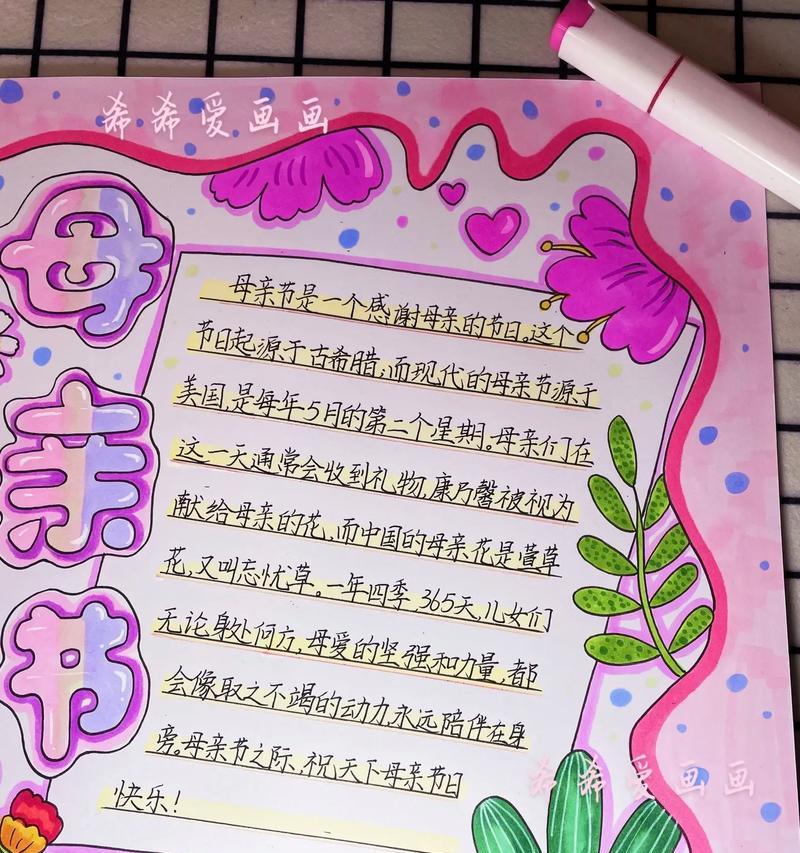 希希爱画画
母亲节
母亲节是一个感谢母亲的节日。这个
节日起源于古希腊,而现代的母亲节源于
美国,是每年5月的第二个星期。母亲们在
这一天通常会收到礼物,康乃馨被视为
献给母亲的花,而中国的母亲花是萱草
花,又叫忘忧草。一年四季,365天,儿女们
无论身处何方,母爱的坚强和力量,都
会像取之不竭的动力,永远陪伴在身
旁。母亲节之际,祝天下母亲节日
快乐!
希希爱画画